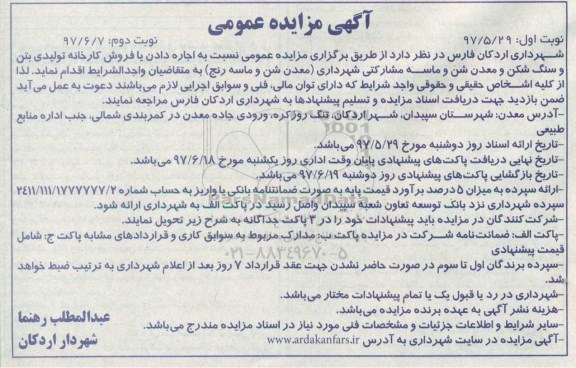 آگهی مزایده عمومی
نوبت اول: ۹۷/۵/۲۹
نوبت دوم: ۹۷/۶/۷
شهرداری اردکان فارس در نظر دارد از طریق برگزاری مزایده عمومی نسبت به اجاره دادن یا فروش کارخانه تولیدی بتن
و سنگ شکن و معدن شن و ماسه مشارکتی شهرداری (معدن شن و ماسه رنج) به متقاضیان واجدالشرایط اقدام نماید. لذا
از کلیه اشخاص حقیقی و حقوقی واجد شرایط که دارای توان مالی، فنی و سوابق اجرایی لازم می‌باشند دعوت به عمل می‌آید
ضمن بازدید جهت دریافت اسناد مزایده و تسلیم پیشنهادها به شهرداری اردکان فارس مراجعه نمایند.
-آدرس معدن: شهرستان سپیدان، شهر اردکان، تنگ روزکره، ورودی جاده معدن در کمربندی شمالی، جنب اداره منابع
طبیعی
-تاریخ ارائه اسناد روز دوشنبه مورخ ۹۷/۵/۲۹ می‌باشد.
-تاریخ نهایی دریافت پاکت‌های پیشنهادی پایان وقت اداری روز یکشنبه مورخ ۹۷/۶/۱۸ می‌باشد.
-تاریخ بازگشایی پاکت‌های پیشنهادی روز دوشنبه ۹۷/۶/۱۹ می‌باشد.
-ارائه سپرده به میزان ۵ درصد برآورد قیمت پایه به صورت ضمانتنامه بانکی یا واریز به حساب شماره ۲۴۱۱/۱۱۱/۱۷۷۷۷۷۷/۲
سپرده شهرداری نزد بانک توسعه تعاون شعبه سپیدان واصل رسید در پاکت الف به شهرداری ارائه شود.
-شرکت کنندگان در مزایده باید پیشنهادات خود را در ۳ پاکت جداگانه به شرح زیر تحویل نمایند.
-پاکت الف: ضمانت‌نامه شرکت در مزایده پاکت ب: مدارک مربوط به سوابق کاری و قراردادهای مشابه پاکت ج: شامل
قیمت پیشنهادی
-سپرده برندگان اول تا سوم در صورت حاضر نشدن جهت عقد قرارداد ۷ روز بعد از اعلام شهرداری به ترتیب ضبط خواهد
شد.
-شهرداری در رد یا قبول یک یا تمام پیشنهادات مختار می‌باشد.
-هزینه نشر آگهی به عهده برنده مزایده می‌باشد.
-سایر شرایط و اطلاعات جزئیات و مشخصات فنی مورد نیاز در اسناد مزایده مندرج می‌باشد.
-آگهی مزایده در سایت شهرداری به آدرس www.ardakanfars.ir
عبدالمطلب رهنما
شهردار اردکان
۰۲۱-۸۸۳۴۹۶۷۰-۵